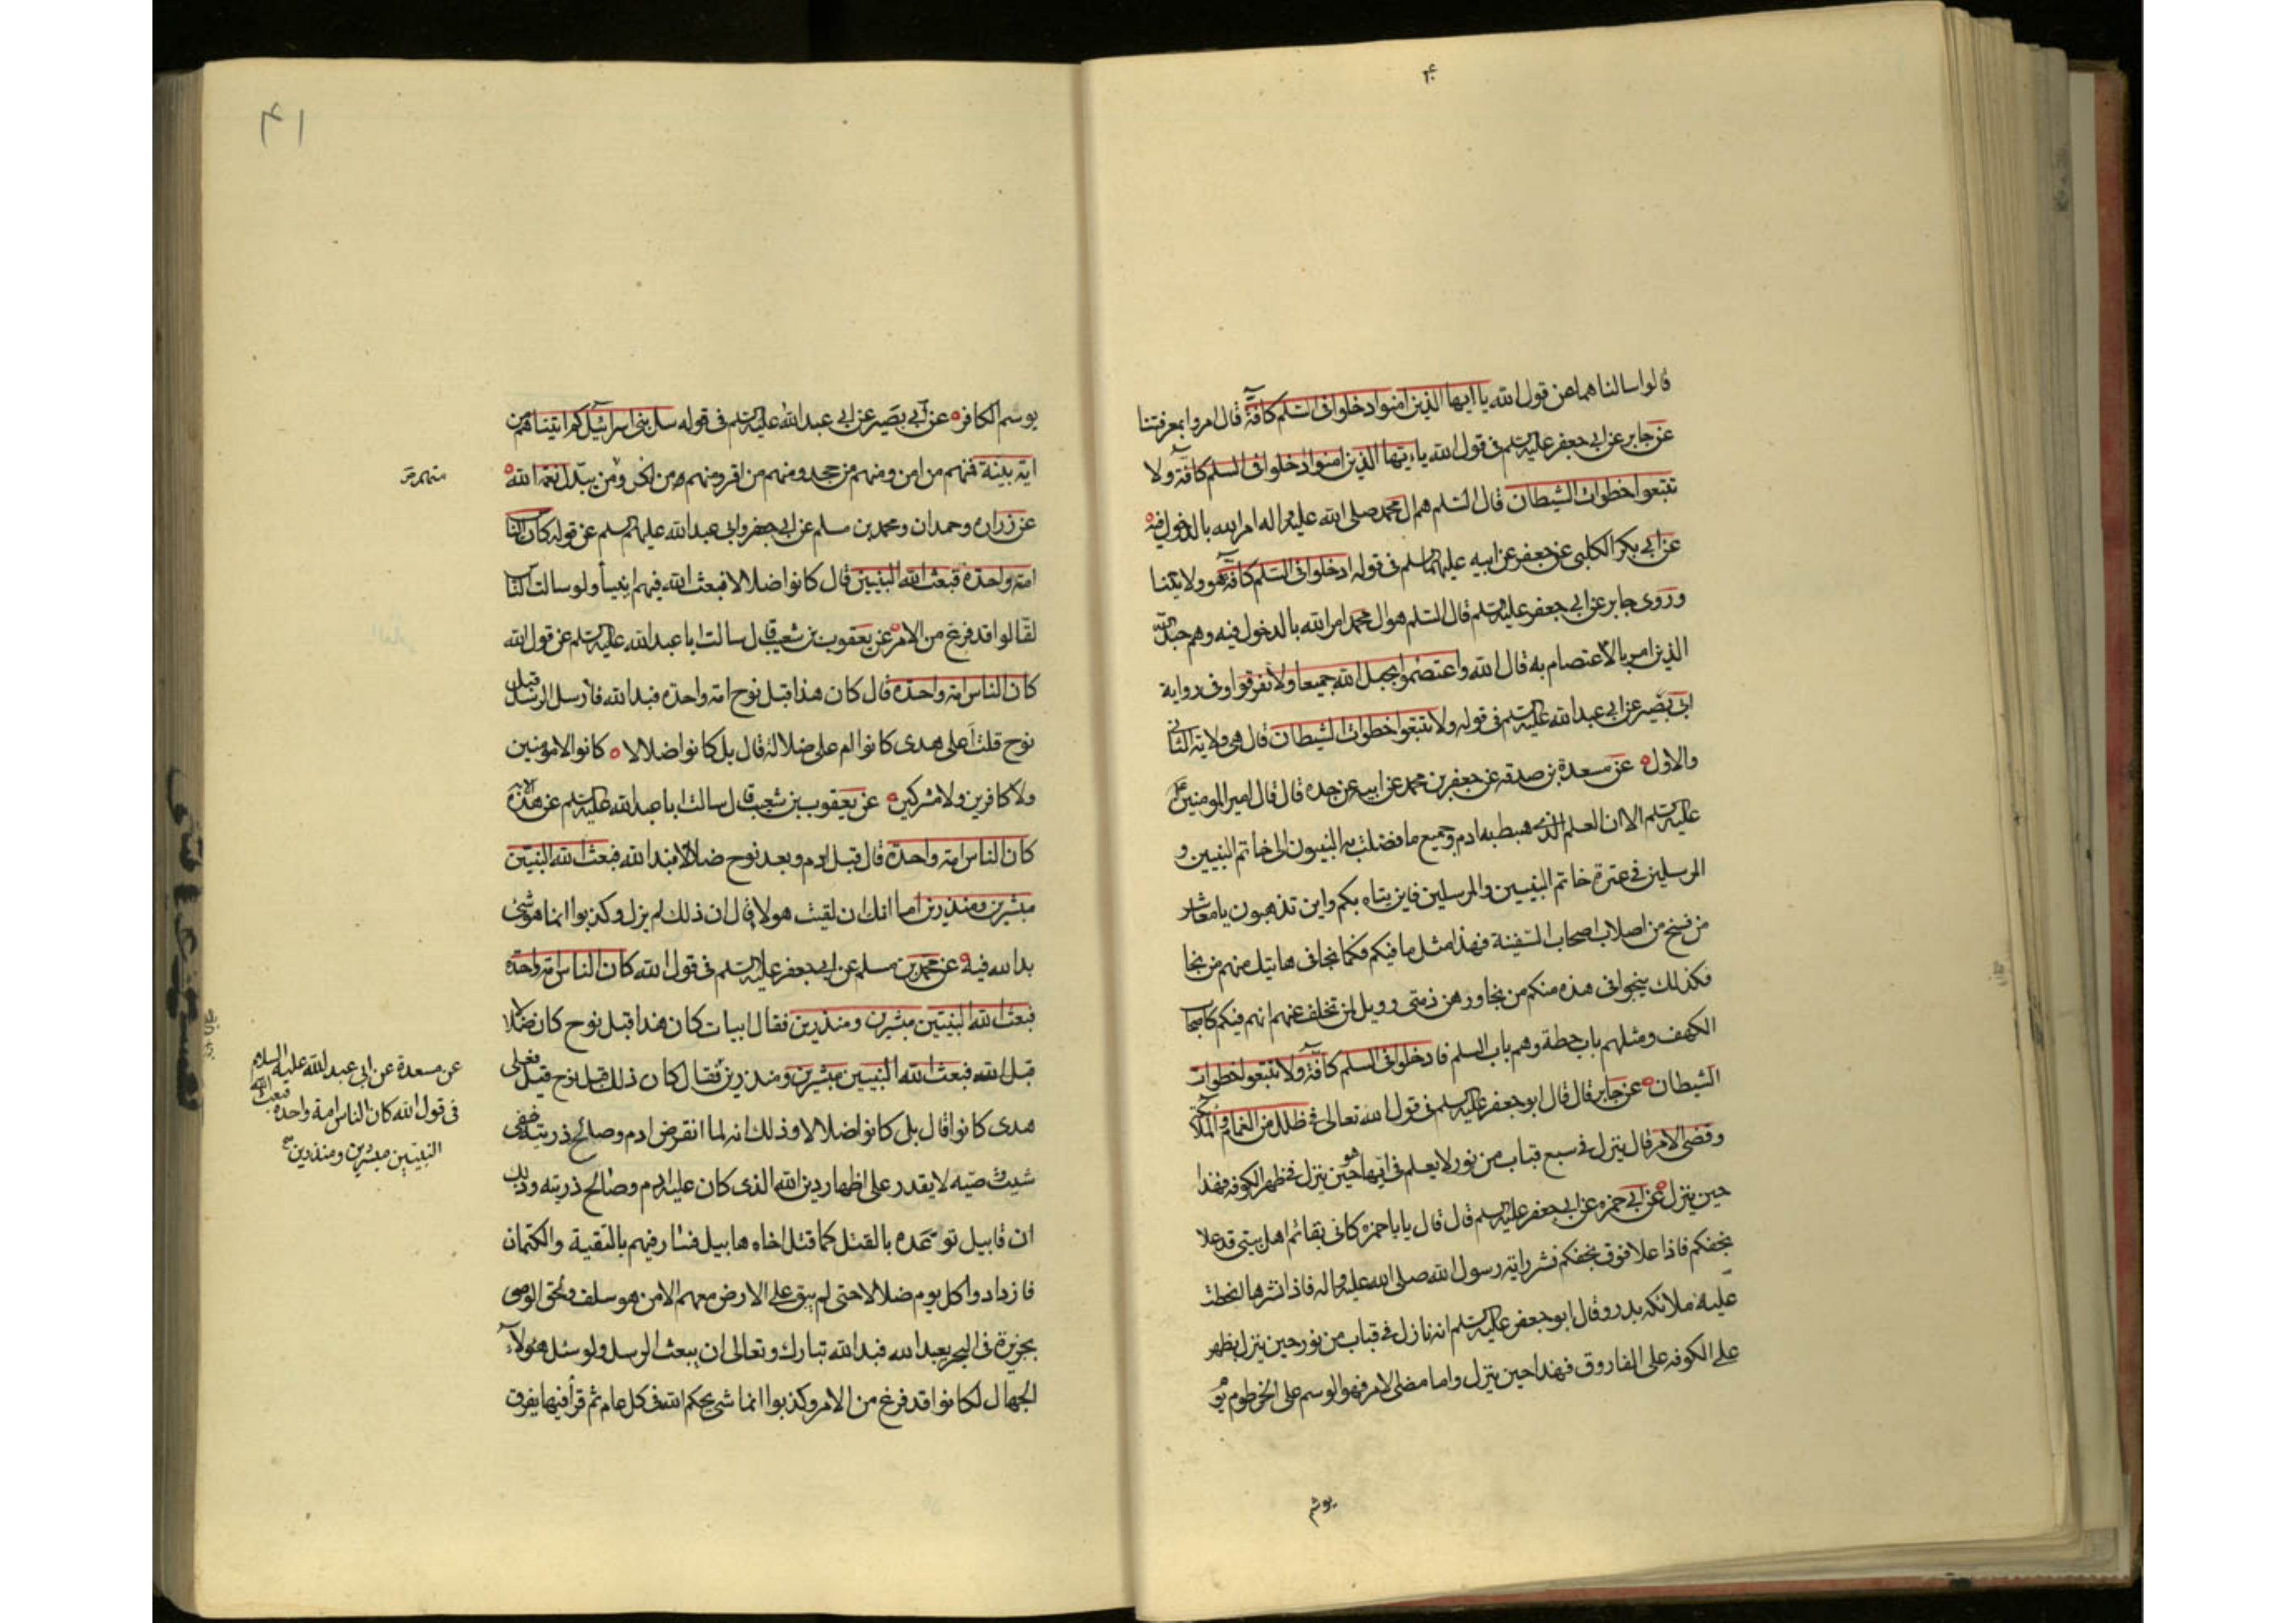 قالوا سالناهما عن قول الله يا ايها الذين امنوا ادخلوا فى السلم كافة قال امروا بمعرفتنا
عن جابر عن ابى جعفر عليه السلم فى قول الله ياءيها الذين امنوا ادخلوا فى السلم كافة ولا
تتبعوا خطوات الشيطان قال السلم هم ال محمد صلى الله عليه واله امر الله بالدخول فيه
عن ابى بكر الكلبى عن جعفر عن ابيه عليهما السلم فى قوله ادخلوا فى السلم كافة هو ولايتنا
وروى جابر عن ابى جعفر عليه السلم قال السلم هو ال محمد امر الله بالدخول فيه وهم حبل الله
الذين امر بالاعتصام به قال الله واعتصموا بحبل الله جميعا ولا تفرقوا وفى رواية
ابى بصير عن ابى عبد الله عليه السلم فى قوله ولا تتبعوا خطوات الشيطان قال هى ولاية الثانى
والاول عن مسعدة بن صدقه عن جعفر بن محمد عن ابيه عن جده قال قال امير المومنين
عليه السلم الا ان العلم الذى هبط به ادم وجميع ما فضلت به النبيون الى خاتم النبيين و
المرسلين فى عترة خاتم النبيين والمرسلين فاين يتاه بكم واين تذهبون يا معاشر
من نسخ من اصلاب اصحاب السفينة فهذا مثل ما فيكم فكما نجا فى هاتيك منهم من نجا
فكذلك ينجوا فى هذه منكم من نجا ورهن ذمتى وويل لمن تخلف عنهم انهم فيكم كاصحاب
الكهف ومثلهم باب حطة وهم باب السلم فادخلوا فى السلم كافة ولا تتبعوا خطوات
الشيطان عن جابر قال قال ابو جعفر عليه السلم فى قول الله تعالى فى ظلل من الغمام والملئكة
وقضى الامر قال ينزل فى سبع قباب من نور لا يعلم فى ايها هو حين ينزل فى ظهر الكوفه فهذا
حين ينزل عن ابى حمزه عن ابى جعفر عليه السلم قال قال يابا حمزه كانى بقائم اهل بيتى قد علا
نجفكم فاذا علا فوق نجفكم نشر راية رسول الله صلى الله عليه واله فاذا نشرها انحطت
عليه ملائكه بدر وقال ابو جعفر عليه السلم انه نازل فى قباب من نور حين ينزل بظهر
على الكوفه على الفاروق فهذا حين ينزل واما مضى الامر فهو الوسم على الخرطوم يو
يوسم
۴۱
يوسم الكافر عن ابى بصير عن ابى عبد الله عليه السلم فى قوله سل بنى اسرائيل كم اتيناهم من
اية بينة فمنهم من امن ومنهم من جحد ومنهم من اقر ومنهم من انكر ومن يبدل نعمة الله
عن زراره وحمدان ومحمد بن مسلم عن ابى جعفر وابى عبد الله عليهما السلم عن قوله كان الناس
امة واحدة فبعث الله النبيين قال كانوا ضلالا فبعث الله فيهم انبيأ ولو سالت الناس
لقالوا قد فرغ من الامر عن يعقوب بن شعيب قال سالت ابا عبد الله عليه السلم عن قول الله
كان الناس امة واحدة قال كان هذا قبل نوح امة واحدة فبدا لله فارسل الرسل قبل
نوح قلت اعلى هدى كانوا ام على ضلالة قال بل كانوا ضلالا كانوا لا مؤمنين
ولا كافرين ولا مشركين عن يعقوب بن شعيب قال سالت ابا عبد الله عليه السلم عن هذه الاية
كان الناس امة واحدة قال قبل ادم وبعد نوح ضلالا فبدا لله فبعث الله النبيين
مبشرين ومنذرين اما انك ان لقيت هولا قال ان ذلك لم يزل وكذبوا انما هو شئ
بدا لله فيه عن محمد بن مسلم عن ابى جعفر عليه السلم فى قول الله كان الناس امة واحدة
فبعث الله النبيين مبشرين ومنذرين فقال ابيات كان هذا قبل نوح كان ضلالا
قبل الله فبعث الله النبيين مبشرين ومنذرين فقال كان ذلك قبل نوح قيل فعلى
هدى كانوا قال بل كانوا ضلالا وذلك انه لما انقرض ادم وصالح ذريته بقى
شيث وصيه لا يقدر على اظهار دين الله الذى كان عليه ادم وصالح ذريته وذلك
ان قابيل تواعده بالقتل كما قتل اخاه هابيل فسار فيهم بالتقية والكتمان
فازدادوا كل يوم ضلالا حتى لم يبق على الارض معهم الا من هو سلف ولحق الوصى
بجزيرة فى البحر يعبد الله فبدا لله تبارك وتعالى ان يبعث الرسل ولو سئل هؤلاء
الجهال لكانوا قد فرغ من الامر وكذبوا انما شئ يحكم الله فى كل عام ثم قرأ فيها يفرق
عن مسعدة عن ابى عبد الله عليه السلام
فى قول الله كان الناس امة واحدة فبعث الله
النبيين مبشرين ومنذرين